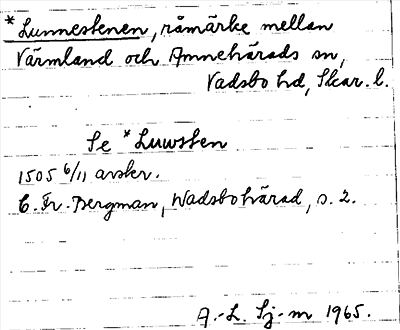 * Lunnestenen, råmärke mellan
Värmland och Amnehärads sn,
Vadsbo hd, Skar. l.
Se * Luwsten
1505 6/11 avskr.
C. Fr. Bergman, Wadsbohärad, s. 2.
A.-L. Sj-m 1965.